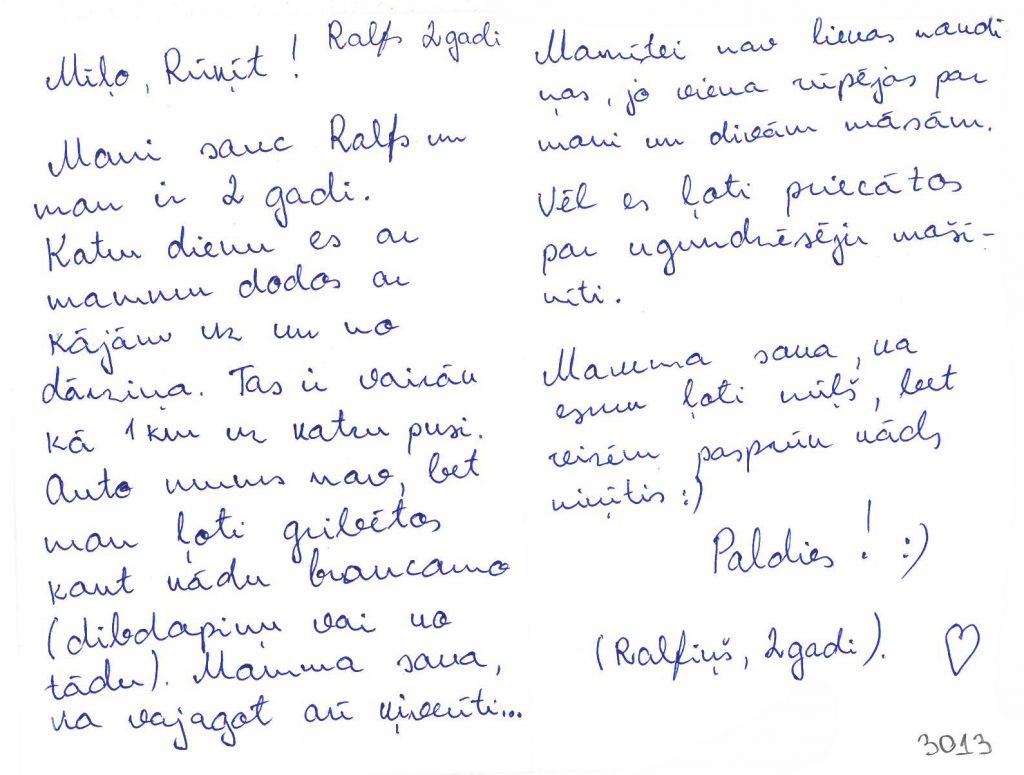 Mīļo, Rūķīt!
Ralfs 2gadi
Mani sauc Ralfs un
man ir 2 gadi.
Katru dienu es ar
mammu dodos ar
kājām uz un no
dārziņa. Tas ir vairāk
kā 1km uz katru pusi.
Auto mums nav, bet
man ļoti gribētos
kaut kādu braucamo
(dibdapiņu vai ko
tādu). Mamma saka,
ka vajagot arī ķiverīti...
Mamītei nav lienas naudi
ņas, jo viena rūpējas par
mani un divām māsām.
Vēl es ļoti priecātos
par ugundzēsēju maší-
nīti.
Mamma saka, ka
esmu ļoti mīļš, bet
reizēm pasprūk kāds
niķītis :)
Paldies! :)
(Ralfiņš, 2gadi). ♡
3013